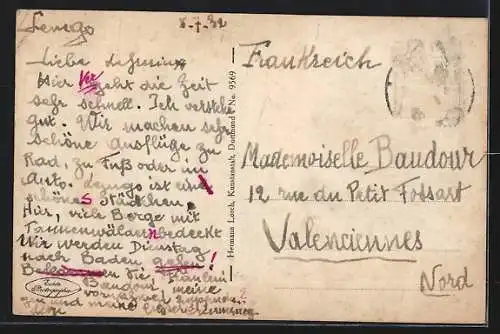 Lemgo
8-7-32
Liebe
Hier vergeht die Zeit
sehr schnell. Ich verstehe
gut. Wir machen sehr
schöne Ausflüge zu
Rad, zu Fuß oder im
Auto. Lemgo ist ein
schönes Städchen.
Hier, viele Berge mit
Tannenwälden bedeckt
Wir werden Dienstag
nach Baden gehen!
die Fräulein
Baudour meine
und meine
Hermann Lorch, Kunstanstalt, Dortmund No. 9569
Echte Photographie
Frankreich
Mademoiselle Baudour
12 rue du Petit Fossart
Valenciennes
Nord